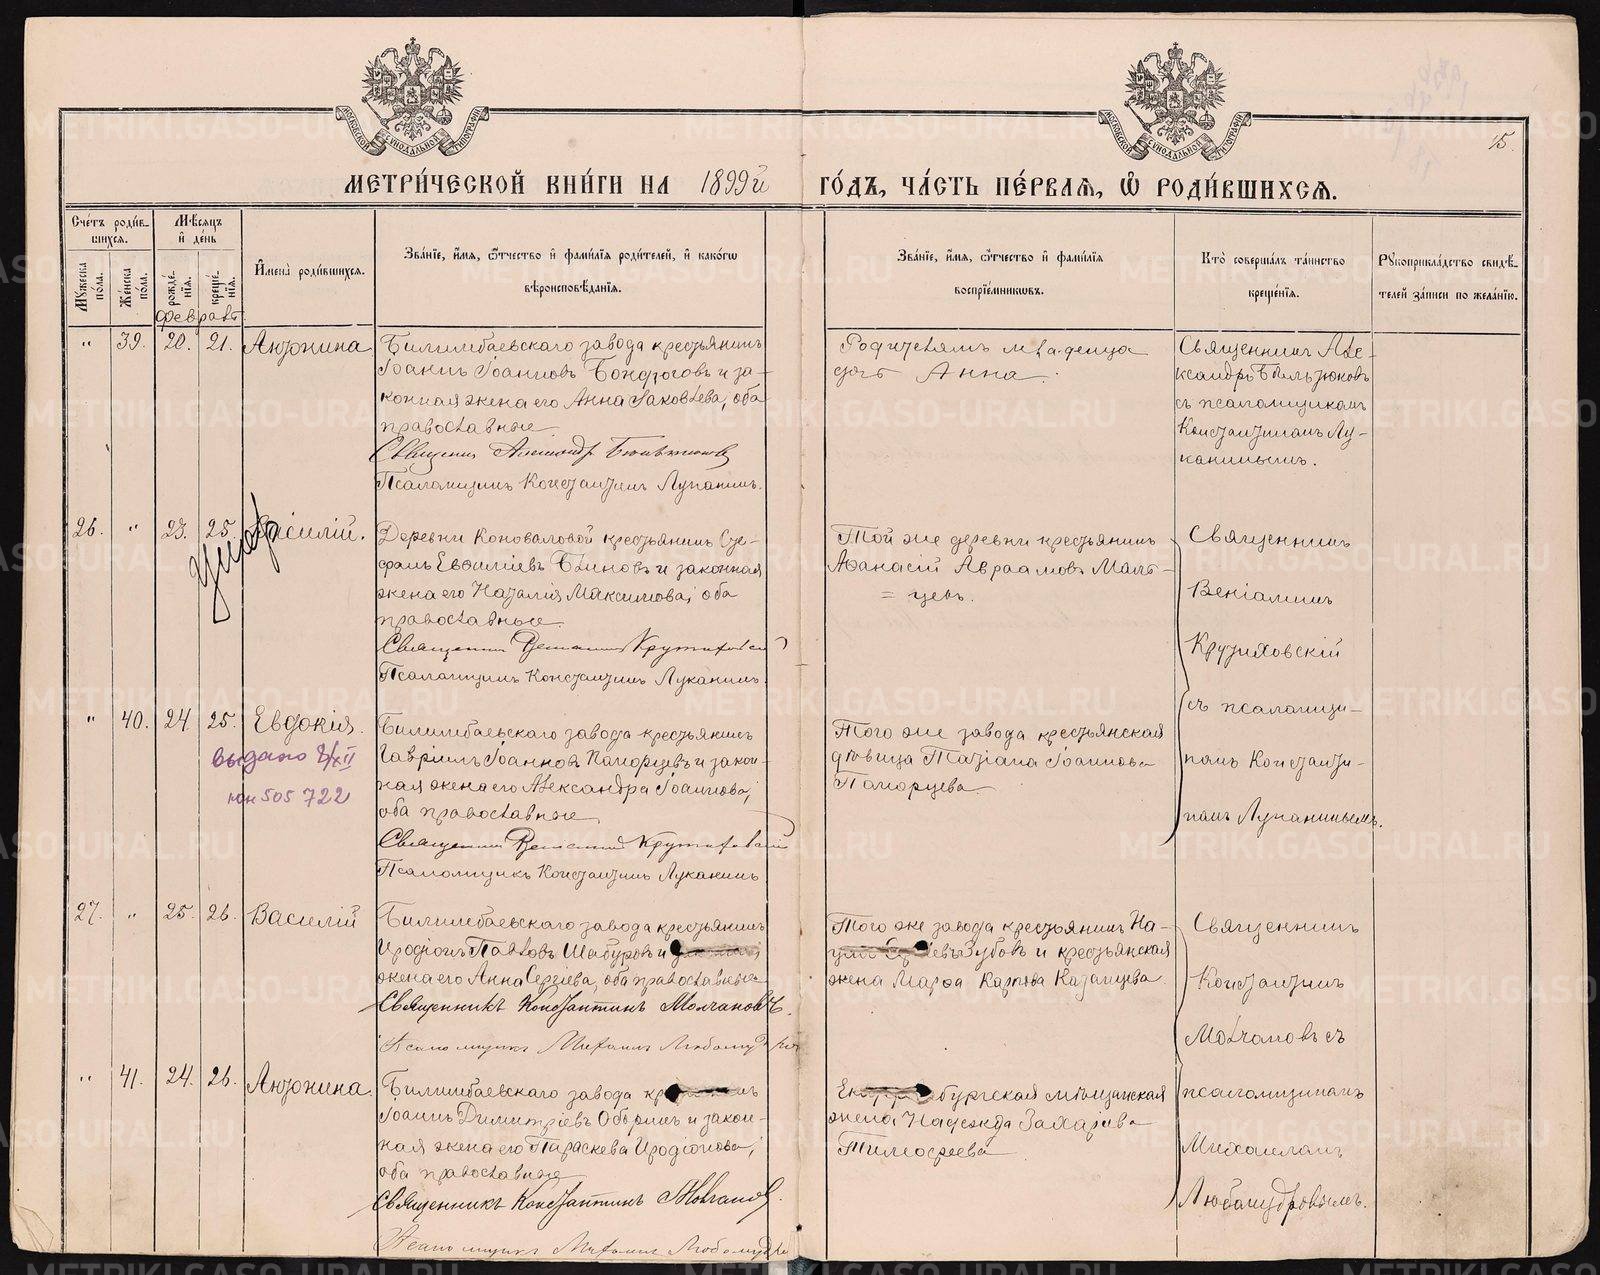 МОСКОВСКОЙ СУНОДАЛЬНОЙ ТИПОГРАФІИ
МОСКОВСКОЙ СУНОДАЛЬНОЙ ТИПОГРАФІИ
15.
МЕТРИ́ЧЕСКОЙ КНИ́ГИ НА 1899й ГО́ДЪ, ЧА́СТЬ ПЕ́РВАЯ, Ѡ РОДИ́ВШИХСЯ.
Сче́тъ роди́вшихся.
Мѣ́сяцъ и҆ де́нь
Мꙋ́жеска по́ла.
Же́нска по́ла.
рожде́нїя.
креще́нїя.
Феврал.
И҆мена̀ роди́вшихся.
Зва́нїе, и҆́мя, ѻ҆́тчество и҆ фами́лїя роди́телей, и҆ како́гѡ
вѣроисповѣ́данїя.
Зва́нїе, и҆́мя, ѻ҆́тчество и҆ фами́лїя
воспрїе́мникѡвъ.
Кто̀ соверша́лъ та́инство
креще́нїя.
Рꙋкоприкла́дство свидѣ́-
телей за́писи по жела́нїю.
" 39. 20. 21. Антонина
Билимбаевскаго завода крестьянинъ
Іоаннъ Іоанновъ и за-
конная жена его Анна Іаковлева, оба
православные
Священник Александр
Псаломщикъ Константинъ Луканинъ.
Родителямъ младенца
дочь Анна.
Священникъ Але-
ксандръ
съ псаломщикомъ
Константиномъ Лу-
канинымъ.
26. " 23. 25. Василій.
умер
Деревни Коноваловой крестьянинъ Сте-
фанъ Евфиміевъ Блиновъ и законная
жена его Наталія Максимова, оба
православные.
Священник Вениамин
Псаломщикъ Константинъ Луканинъ.
Той же деревни крестьянинъ
Аѳанасій Авраамовъ Маль-
= цевъ.
Священникъ
Веніаминъ
съ псаломщи-
комъ Константи-
номъ Луканинымъ.
" 40. 24 25. Евдокія.
выдано 8/XII
юн 505722
Билимбаевскаго завода крестьянинъ
Гавріилъ Іоанновъ Паморцевъ и закон-
ная жена его Александра Іоаннова,
оба православные
Священник Вениамин
Псаломщикъ Константинъ Луканинъ
Того же завода крестьянская
дѣвица Татіана Іоаннова
Паморцева
27. " 25. 26. Василій
Билимбаевскаго завода крестьянинъ
Иродіонъ Павловъ Шабуровъ и
жена его Анна Сергіева, оба православные
Священникъ Константинъ Молчановъ.
Псаломщикъ Михаилъ Любомудров
Того же завода крестьянинъ На-
Зубовъ и крестьянская
жена Марѳа Карпова Казанцева.
Священникъ
Константинъ
Молчановъ съ
псаломщикомъ
Михаиломъ
Любомудровымъ.
" 41. 24. 26. Антонина
Билимбаевскаго завода
Іоаннъ Димитріевъ и закон-
ная жена его Параскева Иродіонова,
оба православные
Священникъ Константинъ Молчанов.
Псаломщикъ Михаилъ Любомудров
мѣщанская
жена Надежда Захаріева
Тимоѳеева